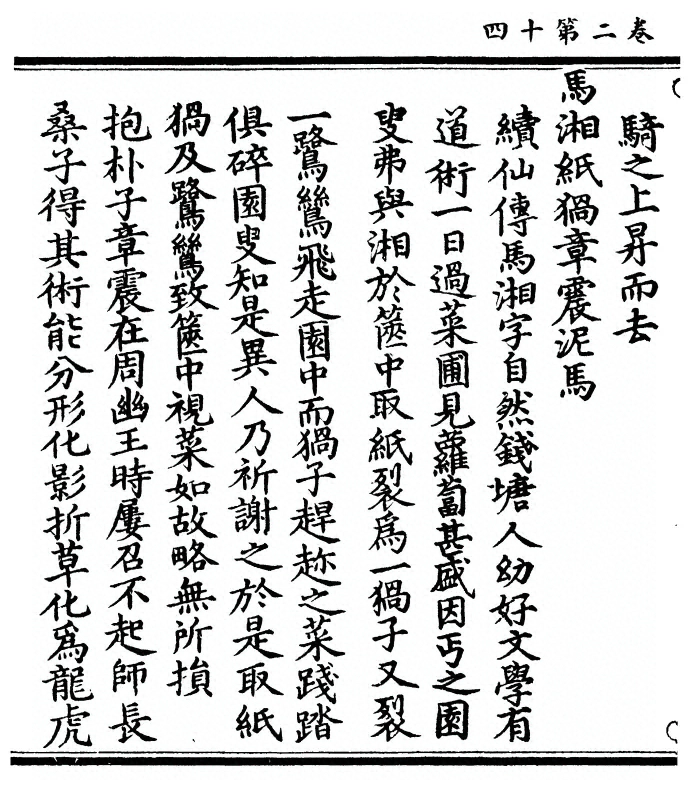 卷二第十四
騎之上昇而去
馬湘紙猧章震泥馬
續仙傳馬湘字自然錢塘人幼好文學有
道術一日過菜圃見蘿蔔甚盛因丐之園
叟弗與湘於篋中取紙裂爲一猧子又裂
一鷺鷥飛走園中而猧子趕趂之菜踐踏
俱碎園叟知是異人乃祈謝之於是取紙
猧及鷺鷥致篋中視菜如故略無所損
抱朴子章震在周幽王時屢召不起師長
桑子得其術能分形化影折草化爲龍虎